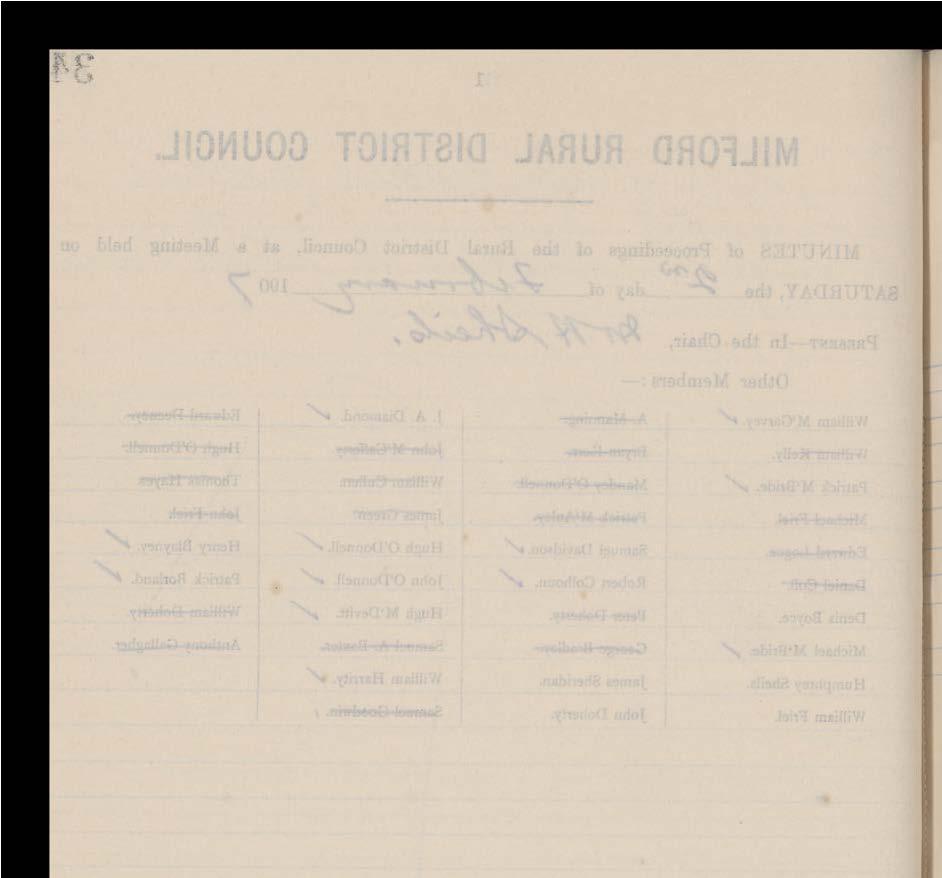 34
1
MILFORD RURAL DISTRICT COUNCIL.
MINUTES of Proceedings of the Rural District Council, at a Meeting held on
SATURDAY, the 2nd day of February 1907
PRESENT—In the Chair, H Sheils.
Other Members:—
William M'Garvey.
William Kelly.
Patrick M'Bride.
Michael Friel.
Edward Logue.
Daniel Coll.
Denis Boyce.
Michael M'Bride.
Humphrey Sheils.
William Friel.
A. Manning.
Bryan Kerr.
Mandey O'Donnell.
Patrick M'Auley.
Samuel Davidson.
Robert Colhoun.
Peter Doherty.
George Bradley.
James Sheridan.
John Doherty.
J. A. Diamond.
John M'Gafferty.
William Cullen.
James Green.
Hugh O'Donnell.
John O'Donnell.
Hugh M'Devitt.
Samuel A. Baxter.
William Harrity.
Samuel Goodwin.
Edward Deeney.
Hugh O'Donnell.
Thomas Hayes.
John Friel.
Henry Blayney.
Patrick Borland.
William Doherty.
Anthony Gallagher.